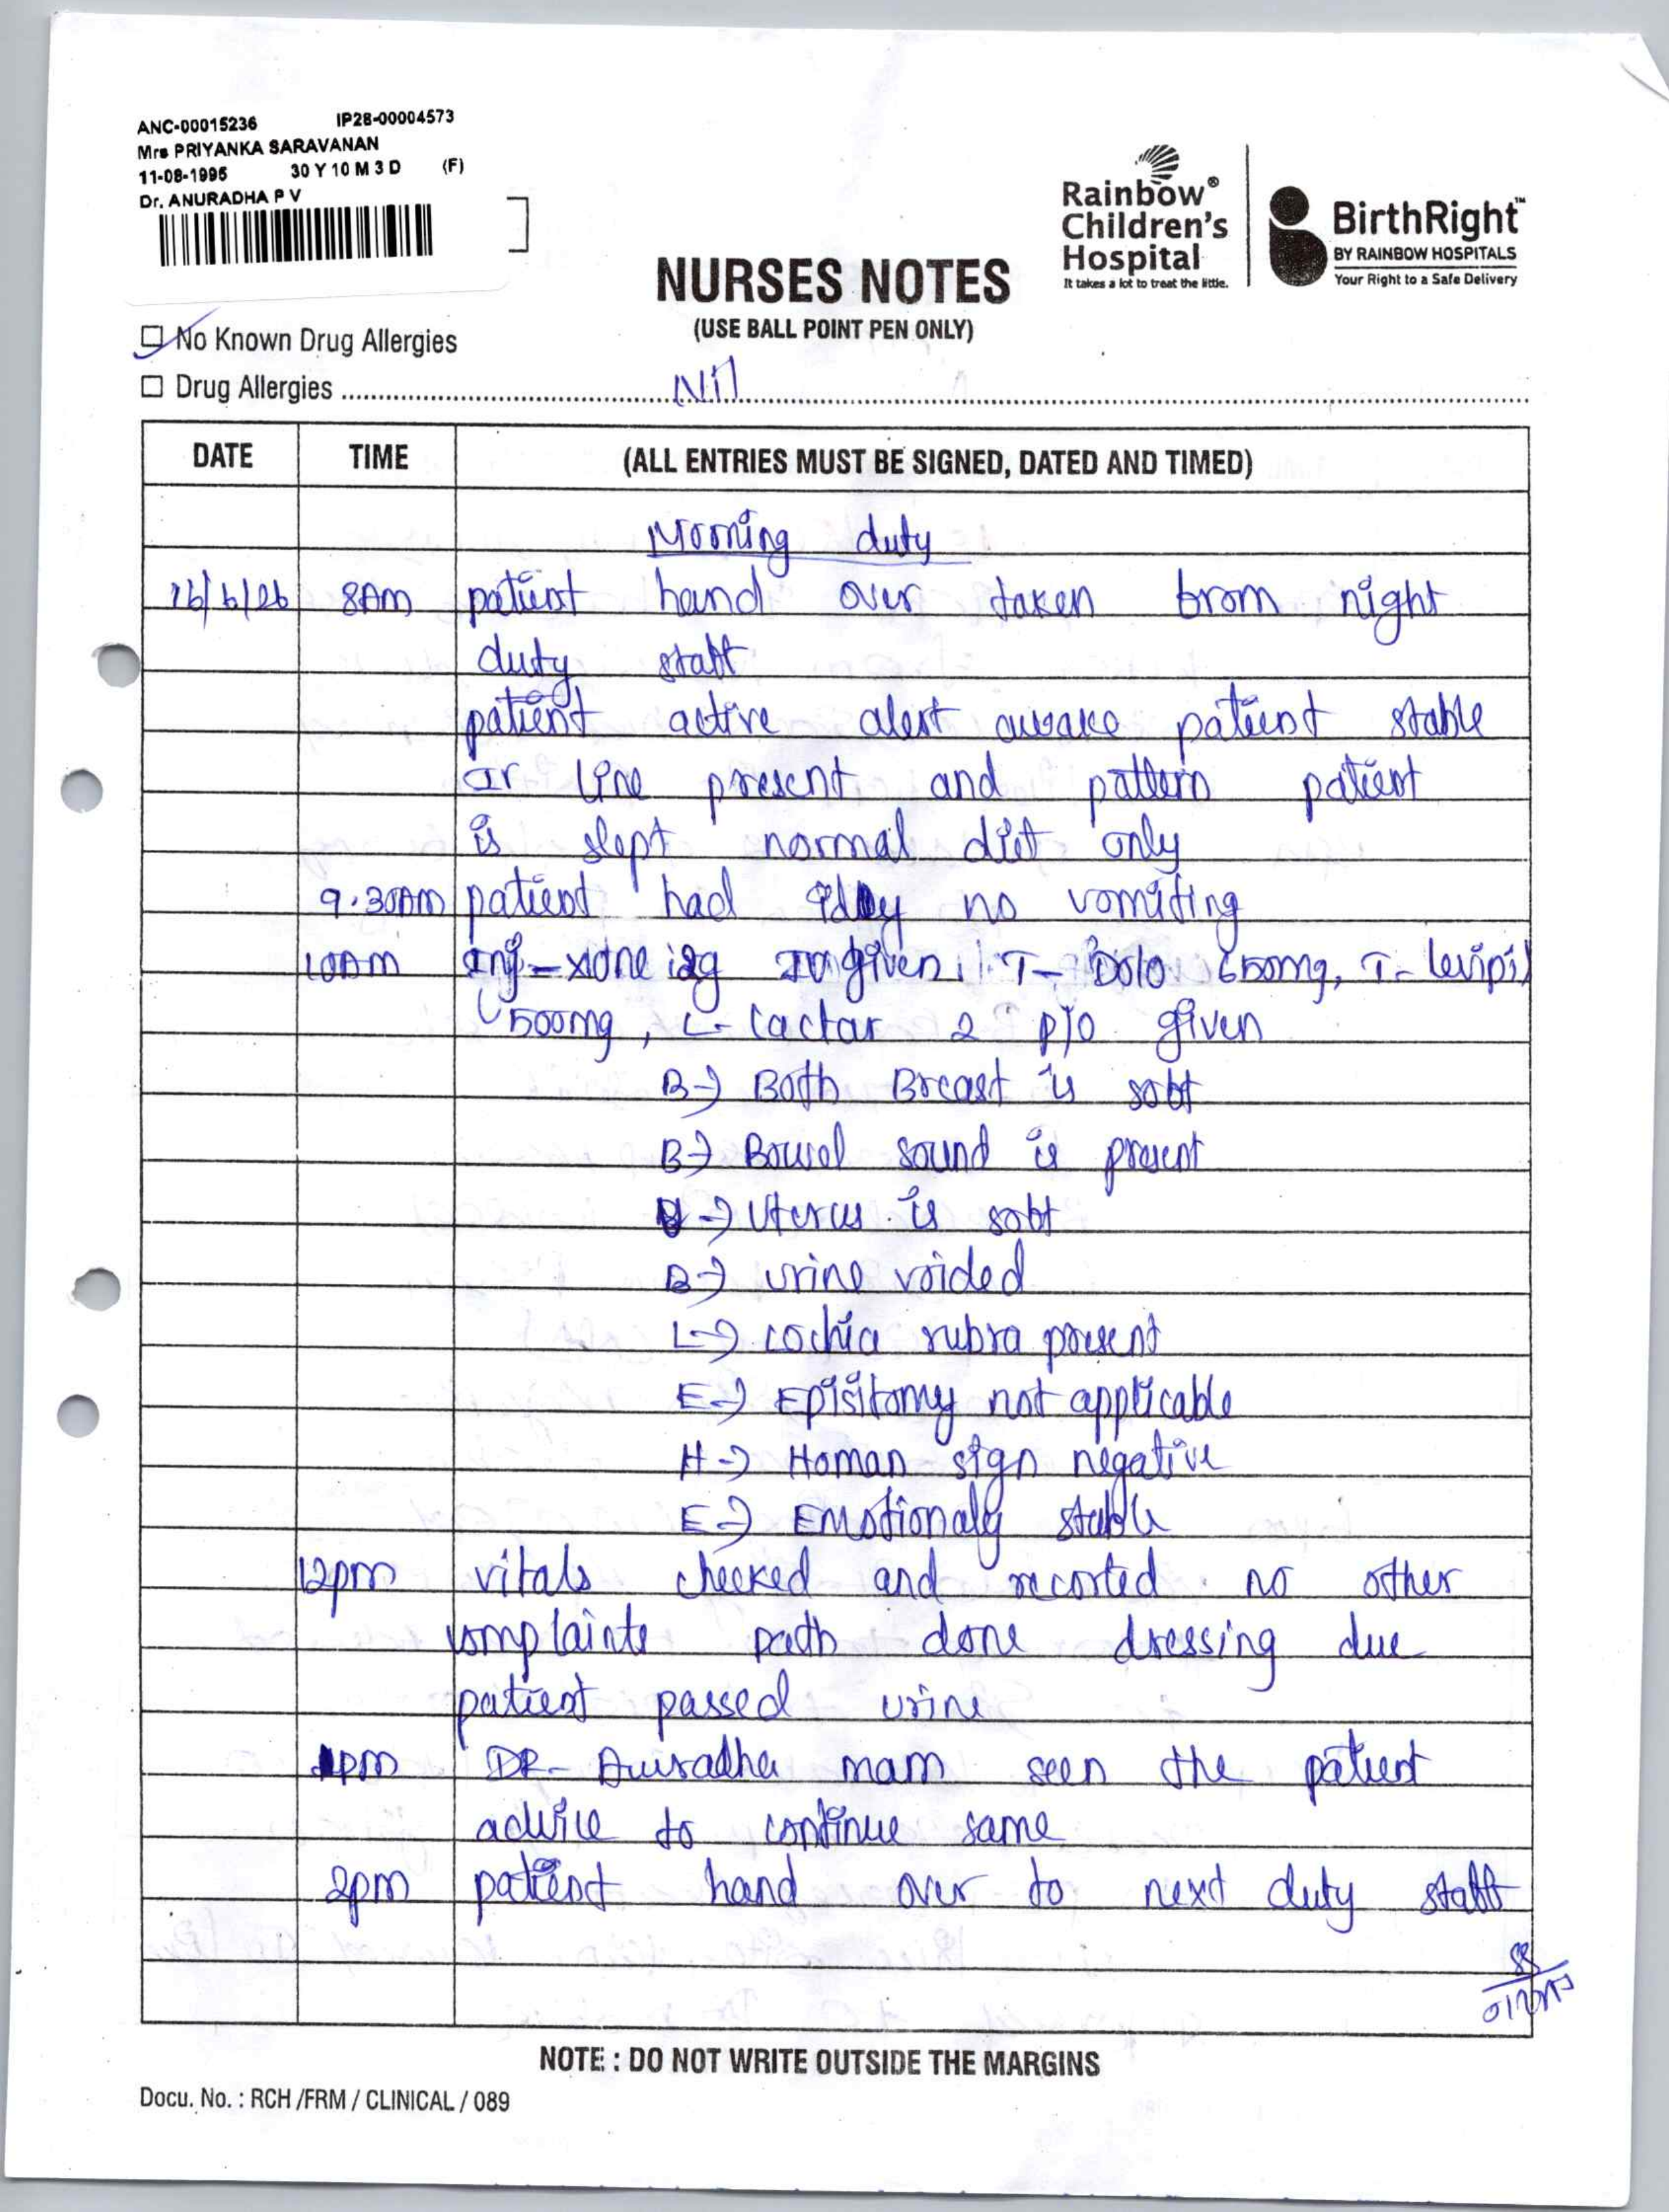 ANC-00015236 IP28-00004573
Mrs PRIYANKA SARAVANAN
11-08-1995 30 Y 10 M 3 D (F)
Dr. ANURADHA P V
Rainbow®
Children's
Hospital
It takes a lot to treat the little.
BirthRight™
BY RAINBOW HOSPITALS
Your Right to a Safe Delivery
NURSES NOTES
(USE BALL POINT PEN ONLY)
No Known Drug Allergies
Drug Allergies Nil
DATE TIME (ALL ENTRIES MUST BE SIGNED, DATED AND TIMED)
Morning duty
16/6/26 8AM patient hand over taken from night
duty staff
patient active alert awake patient stable
IV line present and pattern patient
is slept normal diet only
9.30AM patient had idly no vomiting
10AM Inj-xone 1.2g IV given, T- Dolo 650mg, T- levipil
500mg, L- Lactar 2 P/O given
B→ Both Breast is soft
B→ Bowel sound is present
U→ Uterus is soft
B→ urine voided
L→ Lochia rubra present
E→ Episitomy not applicable
H→ Homan sign negative
E→ Emotionaly stable
12pm vitals checked and recorted no other
complaints path done dressing due
patient passed urine
1pm DR- Anuradha mam seen the patient
advice to continue same
2pm patient hand over to next duty staff
NOTE : DO NOT WRITE OUTSIDE THE MARGINS
Docu. No. : RCH /FRM / CLINICAL / 089